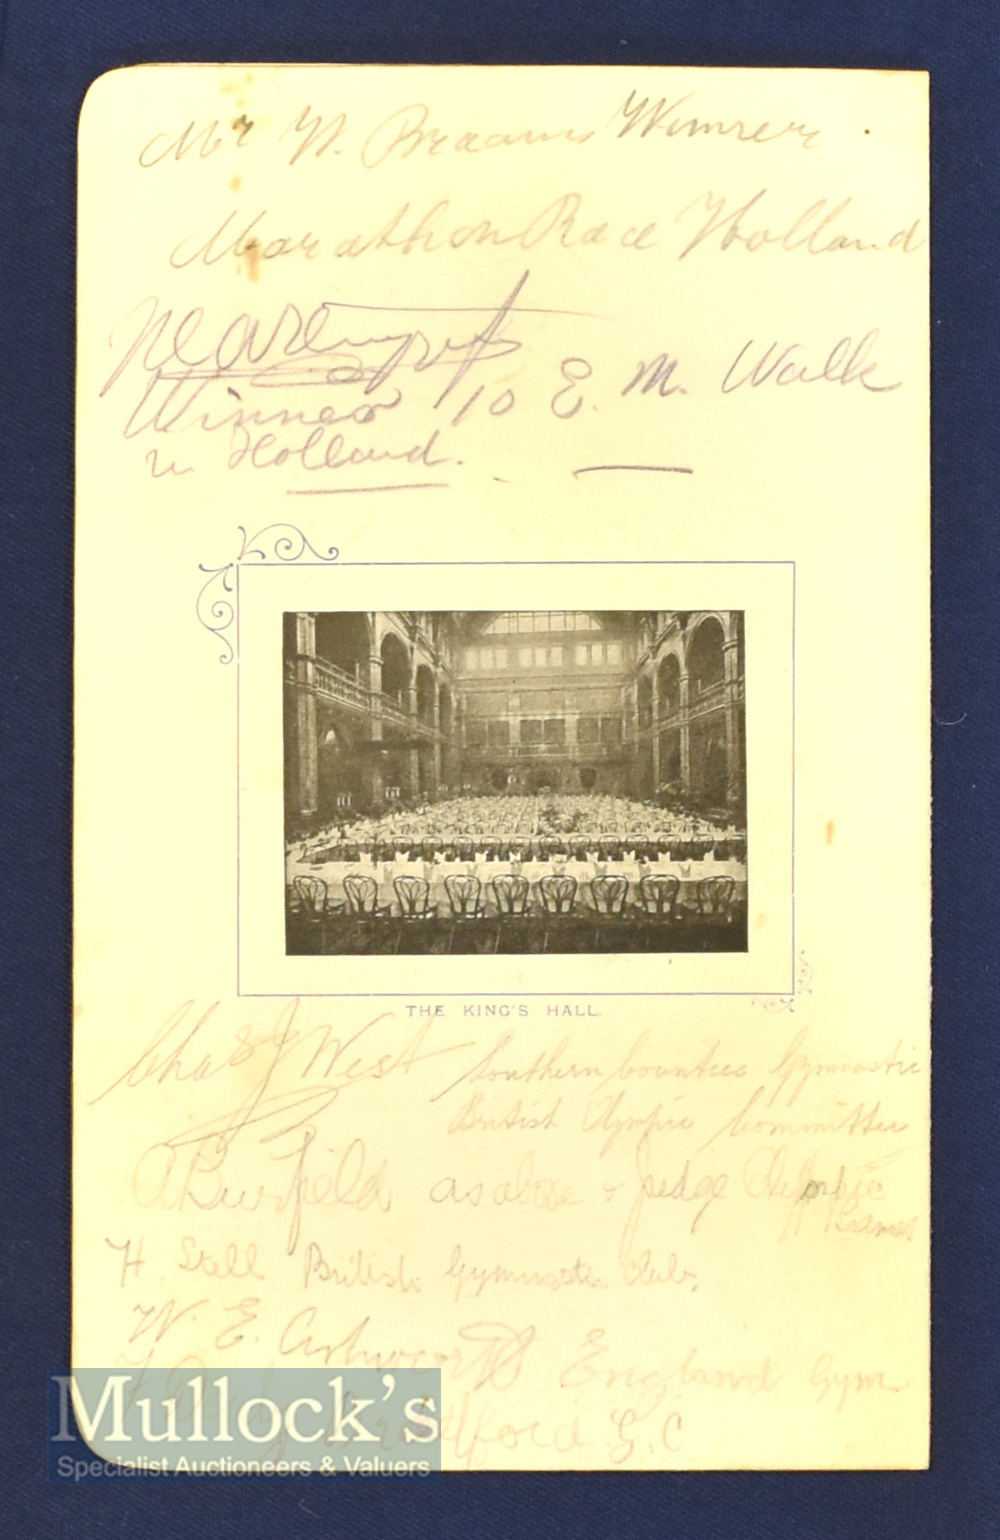 Mr W. Braams Winner
Marathon Race Holland
Winner 10 E. M. Walk
in Holland.
THE KING'S HALL.
Chas J West Southern Counties Gymnastic
British Olympic Committee
as above & Judge Olympic
Games
H Stell British Gymnastic Club,
W. E. Ashworth England Gym
Bradford G. C
Mullock's
Specialist Auctioneers & Valuers